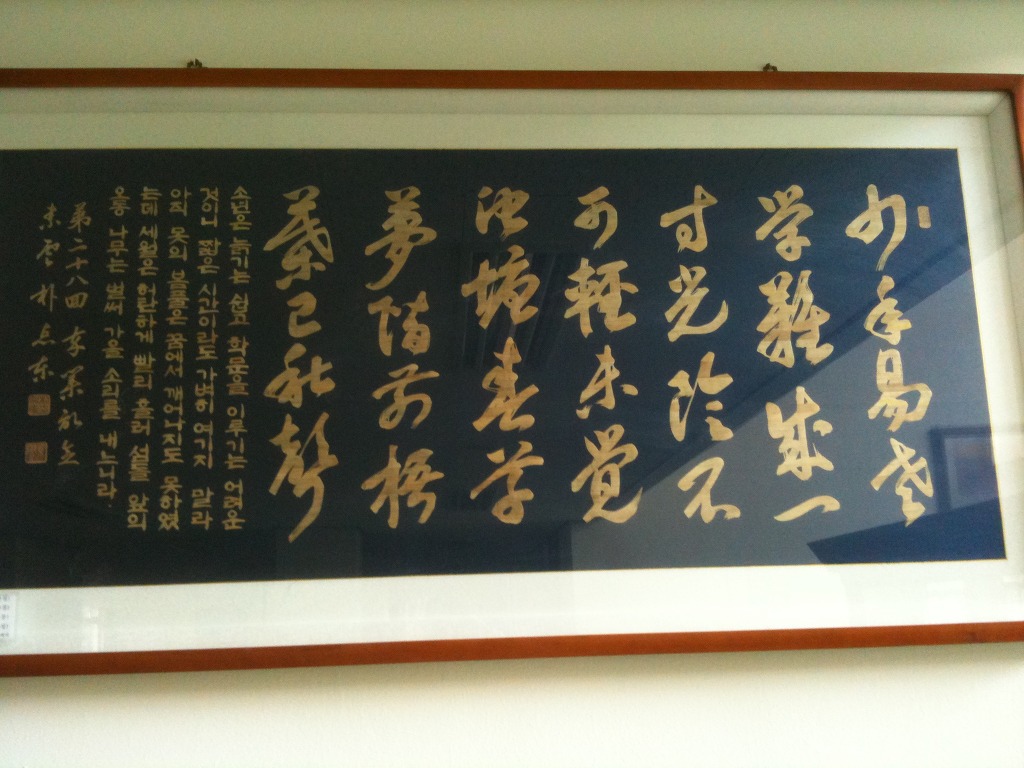 少年易老
学難成一
寸光陰不
可軽未覚
池塘春草
夢階前梧
葉已秋聲
소년은 늙기는 쉽고 학문을 이루기는 어려운
것이니 짧은 시간이라도 가벼히 여기지 말라
아직 못의 봄풀은 꿈에서 깨어나지도 못하였
는데 세월은 빨리 흘러 섬돌 앞의
오동 나무는 벌써 가을 소리를 내느니라.
第二十八回 李
朴